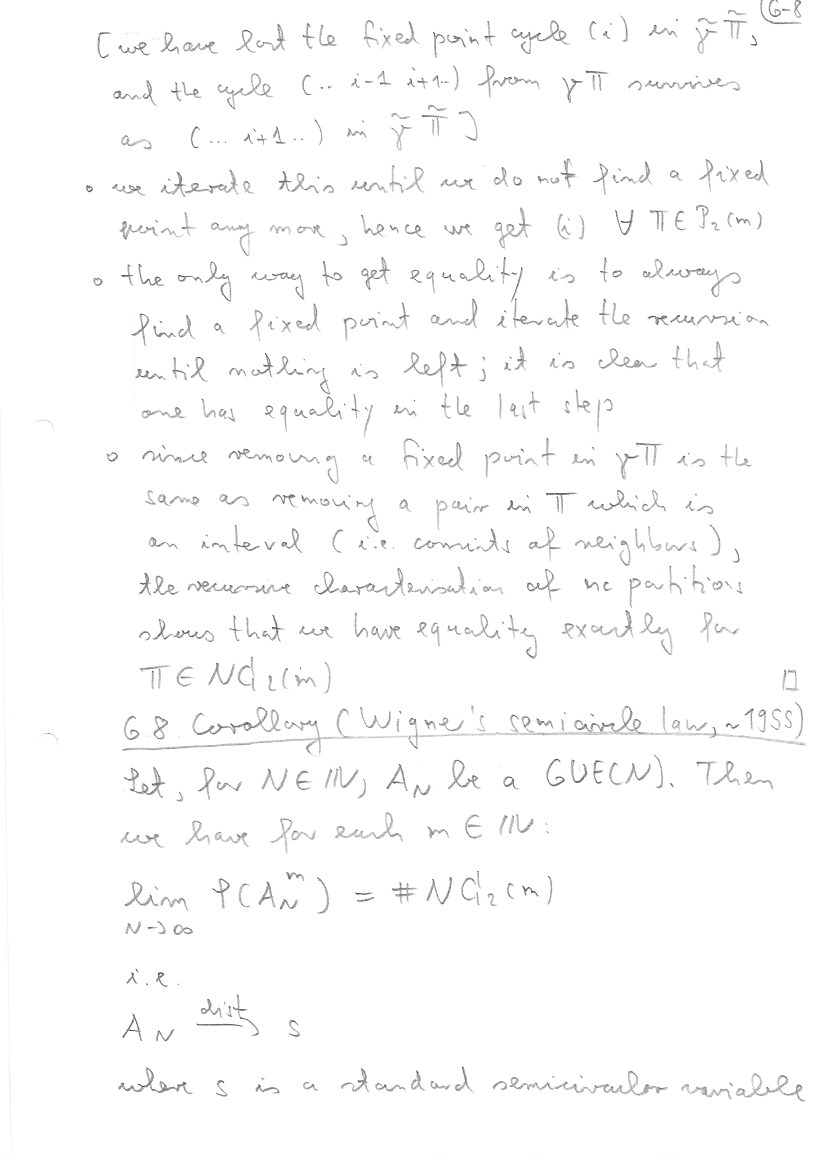 6-8
[we have lost the fixed point cycle (i) in γ̃π̃,
and the cycle (.. i-1 i+1..) from γπ survives
as (... i+1..) in γ̃ π̃ ]
∘ we iterate this until we do not find a fixed
point any more, hence we get (i) ∀ π ∈ P₂(m)
∘ the only way to get equality is to always
find a fixed point and iterate the recursion
until nothing is left; it is clear that
one has equality in the last step
∘ since removing a fixed point in γπ is the
same as removing a pair in π which is
an interval (i.e. consists of neighbours),
the recursive characterisation of nc partitions
shows that we have equality exactly for
π ∈ NC₂(m) □
6.8. Corollary (Wigner's semicircle law, ~1955)
Let, for N ∈ ℕ, A_N be a GUE(N). Then
we have for each m ∈ ℕ:
lim φ(A_N^m) = # NC₂(m)
N→∞
i.e.
A_N dist→ s
where s is a standard semicircular variable